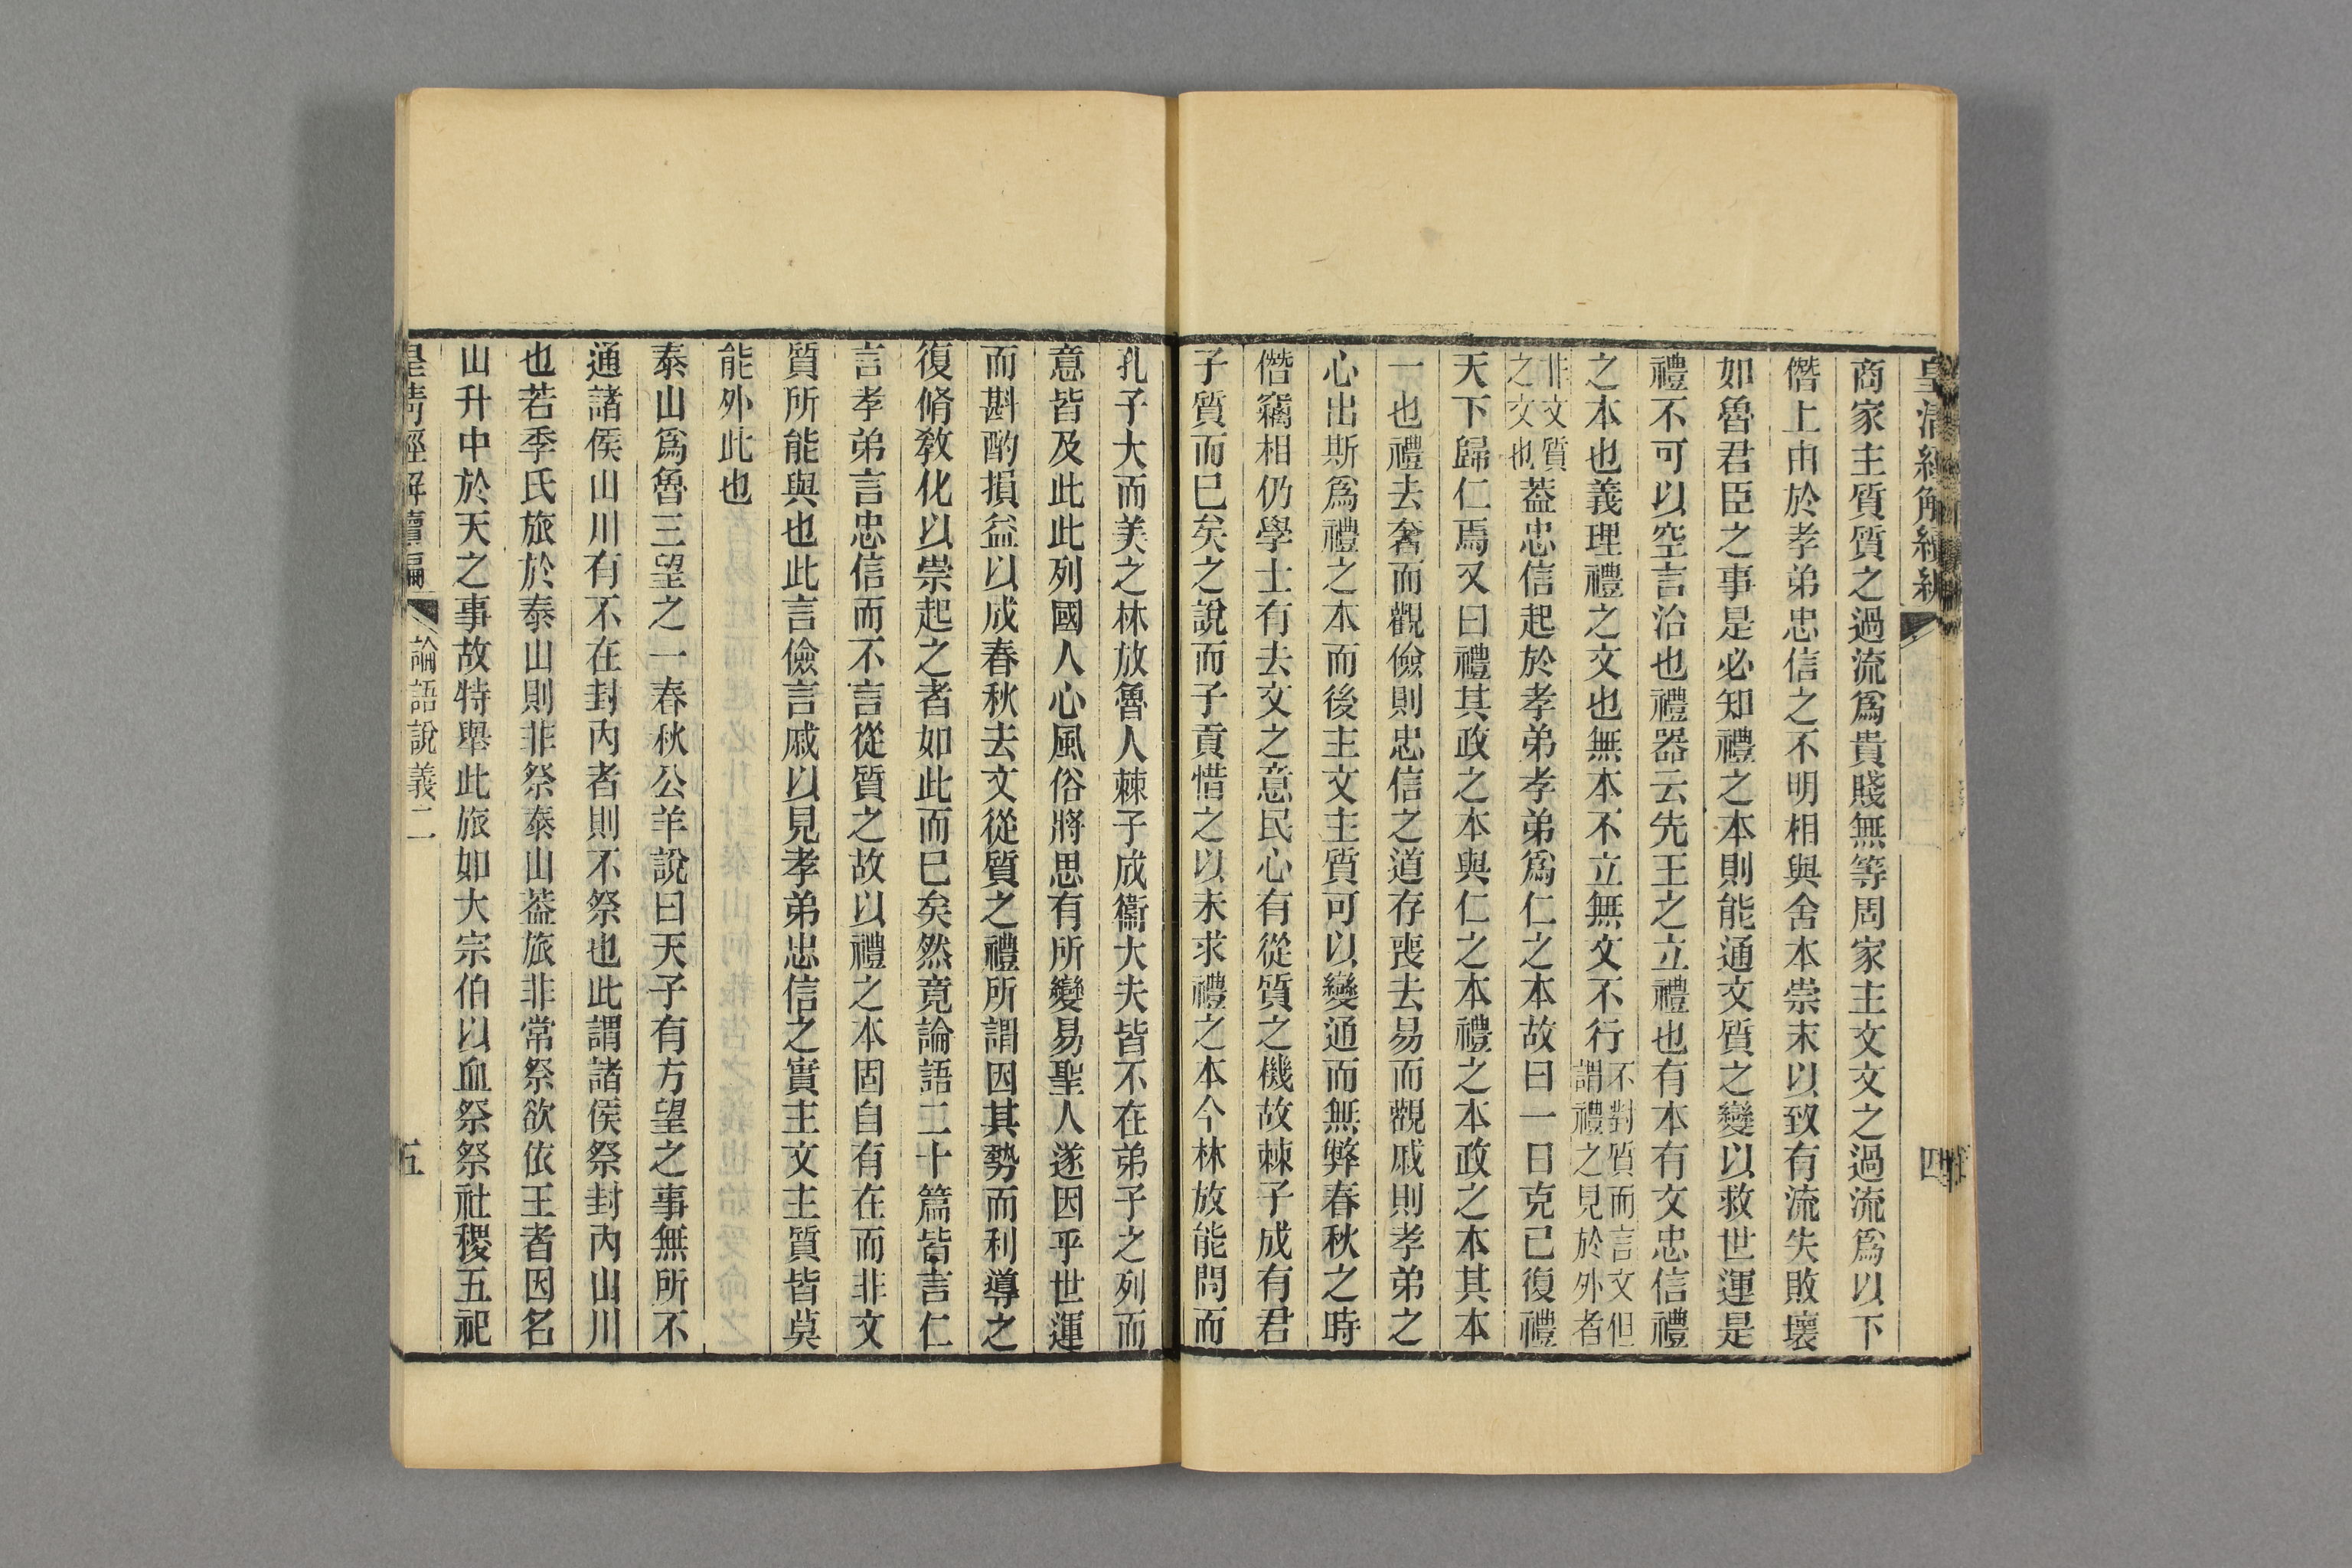 皇清經解續編
四
商家主質質之過流爲貴賤無等周家主文文之過流爲以下
僭上由於孝弟忠信之不明相與舍本崇末以致有流失敗壞
如魯君臣之事是必知禮之本則能通文質之變以救世運是
禮不可以空言治也禮器云先王之立禮也有本有文忠信禮
之本也義理禮之文也無本不立無文不行不對質而言文但謂禮之見於外者
非文質之文也葢忠信起於孝弟孝弟爲仁之本故曰一日克己復禮
天下歸仁焉又曰禮其政之本與仁之本禮之本政之本其本
一也禮去奢而觀儉則忠信之道存喪去易而觀戚則孝弟之
心出斯爲禮之本而後主文主質可以變通而無弊春秋之時
僭竊相仍學士有去文之意民心有從質之機故棘子成有君
子質而已矣之說而子貢惜之以未求禮之本今林放能問而
孔子大而美之林放魯人棘子成衞大夫皆不在弟子之列而
意皆及此此列國人心風俗將思有所變易聖人遂因乎世運
而斟酌損益以成春秋去文從質之禮所謂因其勢而利導之
復脩敎化以崇起之者如此而已矣然竟論語二十篇皆言仁
言孝弟言忠信而不言從質之故以禮之本固自有在而非文
質所能與也此言儉言戚以見孝弟忠信之實主文主質皆莫
能外此也
泰山爲魯三望之一春秋公羊說曰天子有方望之事無所不
通諸侯山川有不在封內者則不祭也此謂諸侯祭封內山川
也若季氏旅於泰山則非祭泰山葢旅非常祭欲依王者因名
山升中於天之事故特舉此旅如大宗伯以血祭祭社稷五祀
皇清經解續編
論語說義二
五